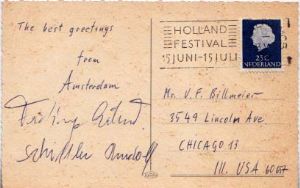 The best greetings
from
Amsterdam
HOLLAND
FESTIVAL
15 JUNI-15 JULI
25C
NEDERLAND
Mr. V.F. Billmeier
3549 Lincoln Ave
CHICAGO 13
Ill. USA 60657